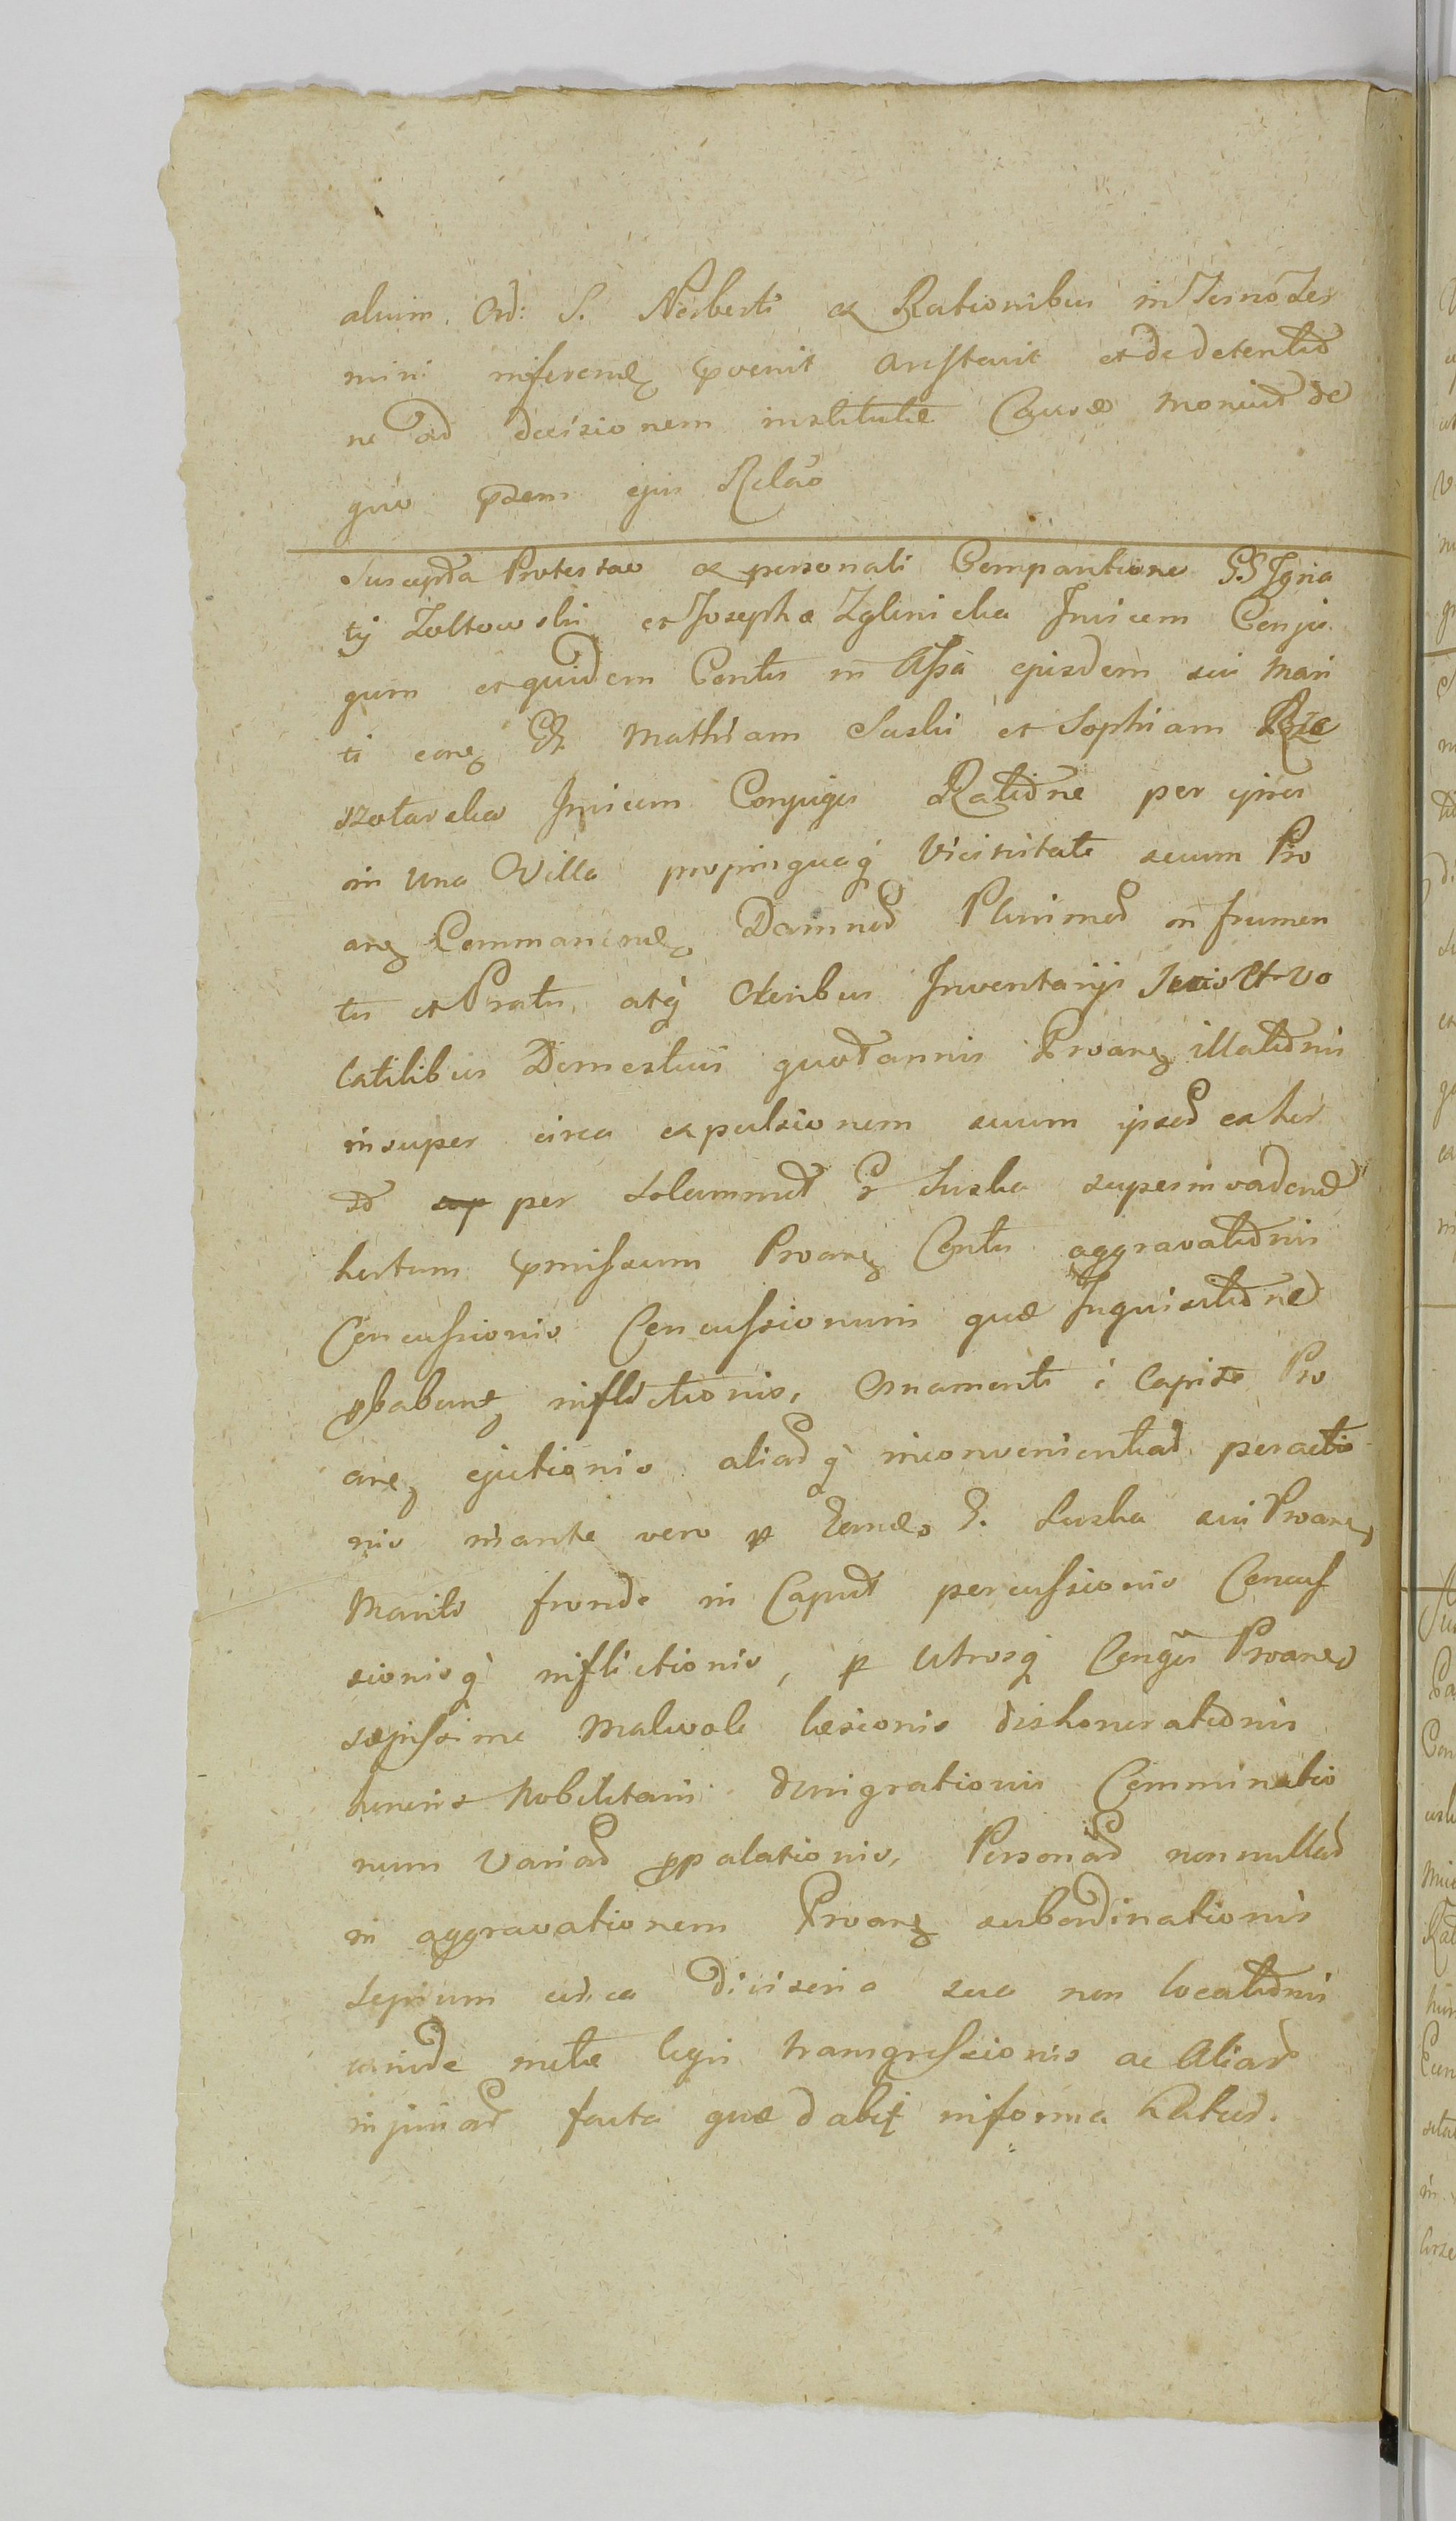 alium. Ord: S. Norberti ex Rationibus in Termō Ter
mini inferend. pvenit arestavit et de detentio
ne ad decisionem institutæ Causæ monuit de
quo pdem ejus Relāo
Suscepta Protestao ex personali Comparitione GG Igna
tij Zoltowski et Josepha Zglinicka Invicem Conju
gum et quidem Contis in Assā ejusdem sui Mari
ti conq G. Mathiam Suski et Sophiam Rze
szotarska Invicem Conjuges Ratione per ipsos
in Una Villa propinquaq Vicinitate suum Pro
anz Commanend. Damnor Plurimor in frumen
tis et Pratis, atq Oleribus Inventarijs Suis et vo
latilibus Domesticis quotannis Proanz illationis
insuper circa expulsionem suum ipsor ex hor
to per Solummet G Suska superinvadend
hortum pmissum Proanz Contis aggravationis
Concussionis Concussionum quæ Inquisitione
pbabunt inflictionis, Ornamenti è Capite Pro
anz ejectionis aliarq inconvenientiar peractio
nis inante vero p Eand. G. Suska sui Proanz
Marito fronde in Caput percussionis Concus
sionisq inflictionis, p Utrosq Conges Proanz
sæpissime Malivole læsionis dishonorationis
honoris Nobilitaris denigrationis Comminatio
num Variar ppalationis, Personar nonnullar
in aggravationem Proanz subordinationis
Sepium circa Divisoria sua non locationis
exinde metæ legis transgressionis ac Aliar
injuriar facta quæ dabit in forma Latius.